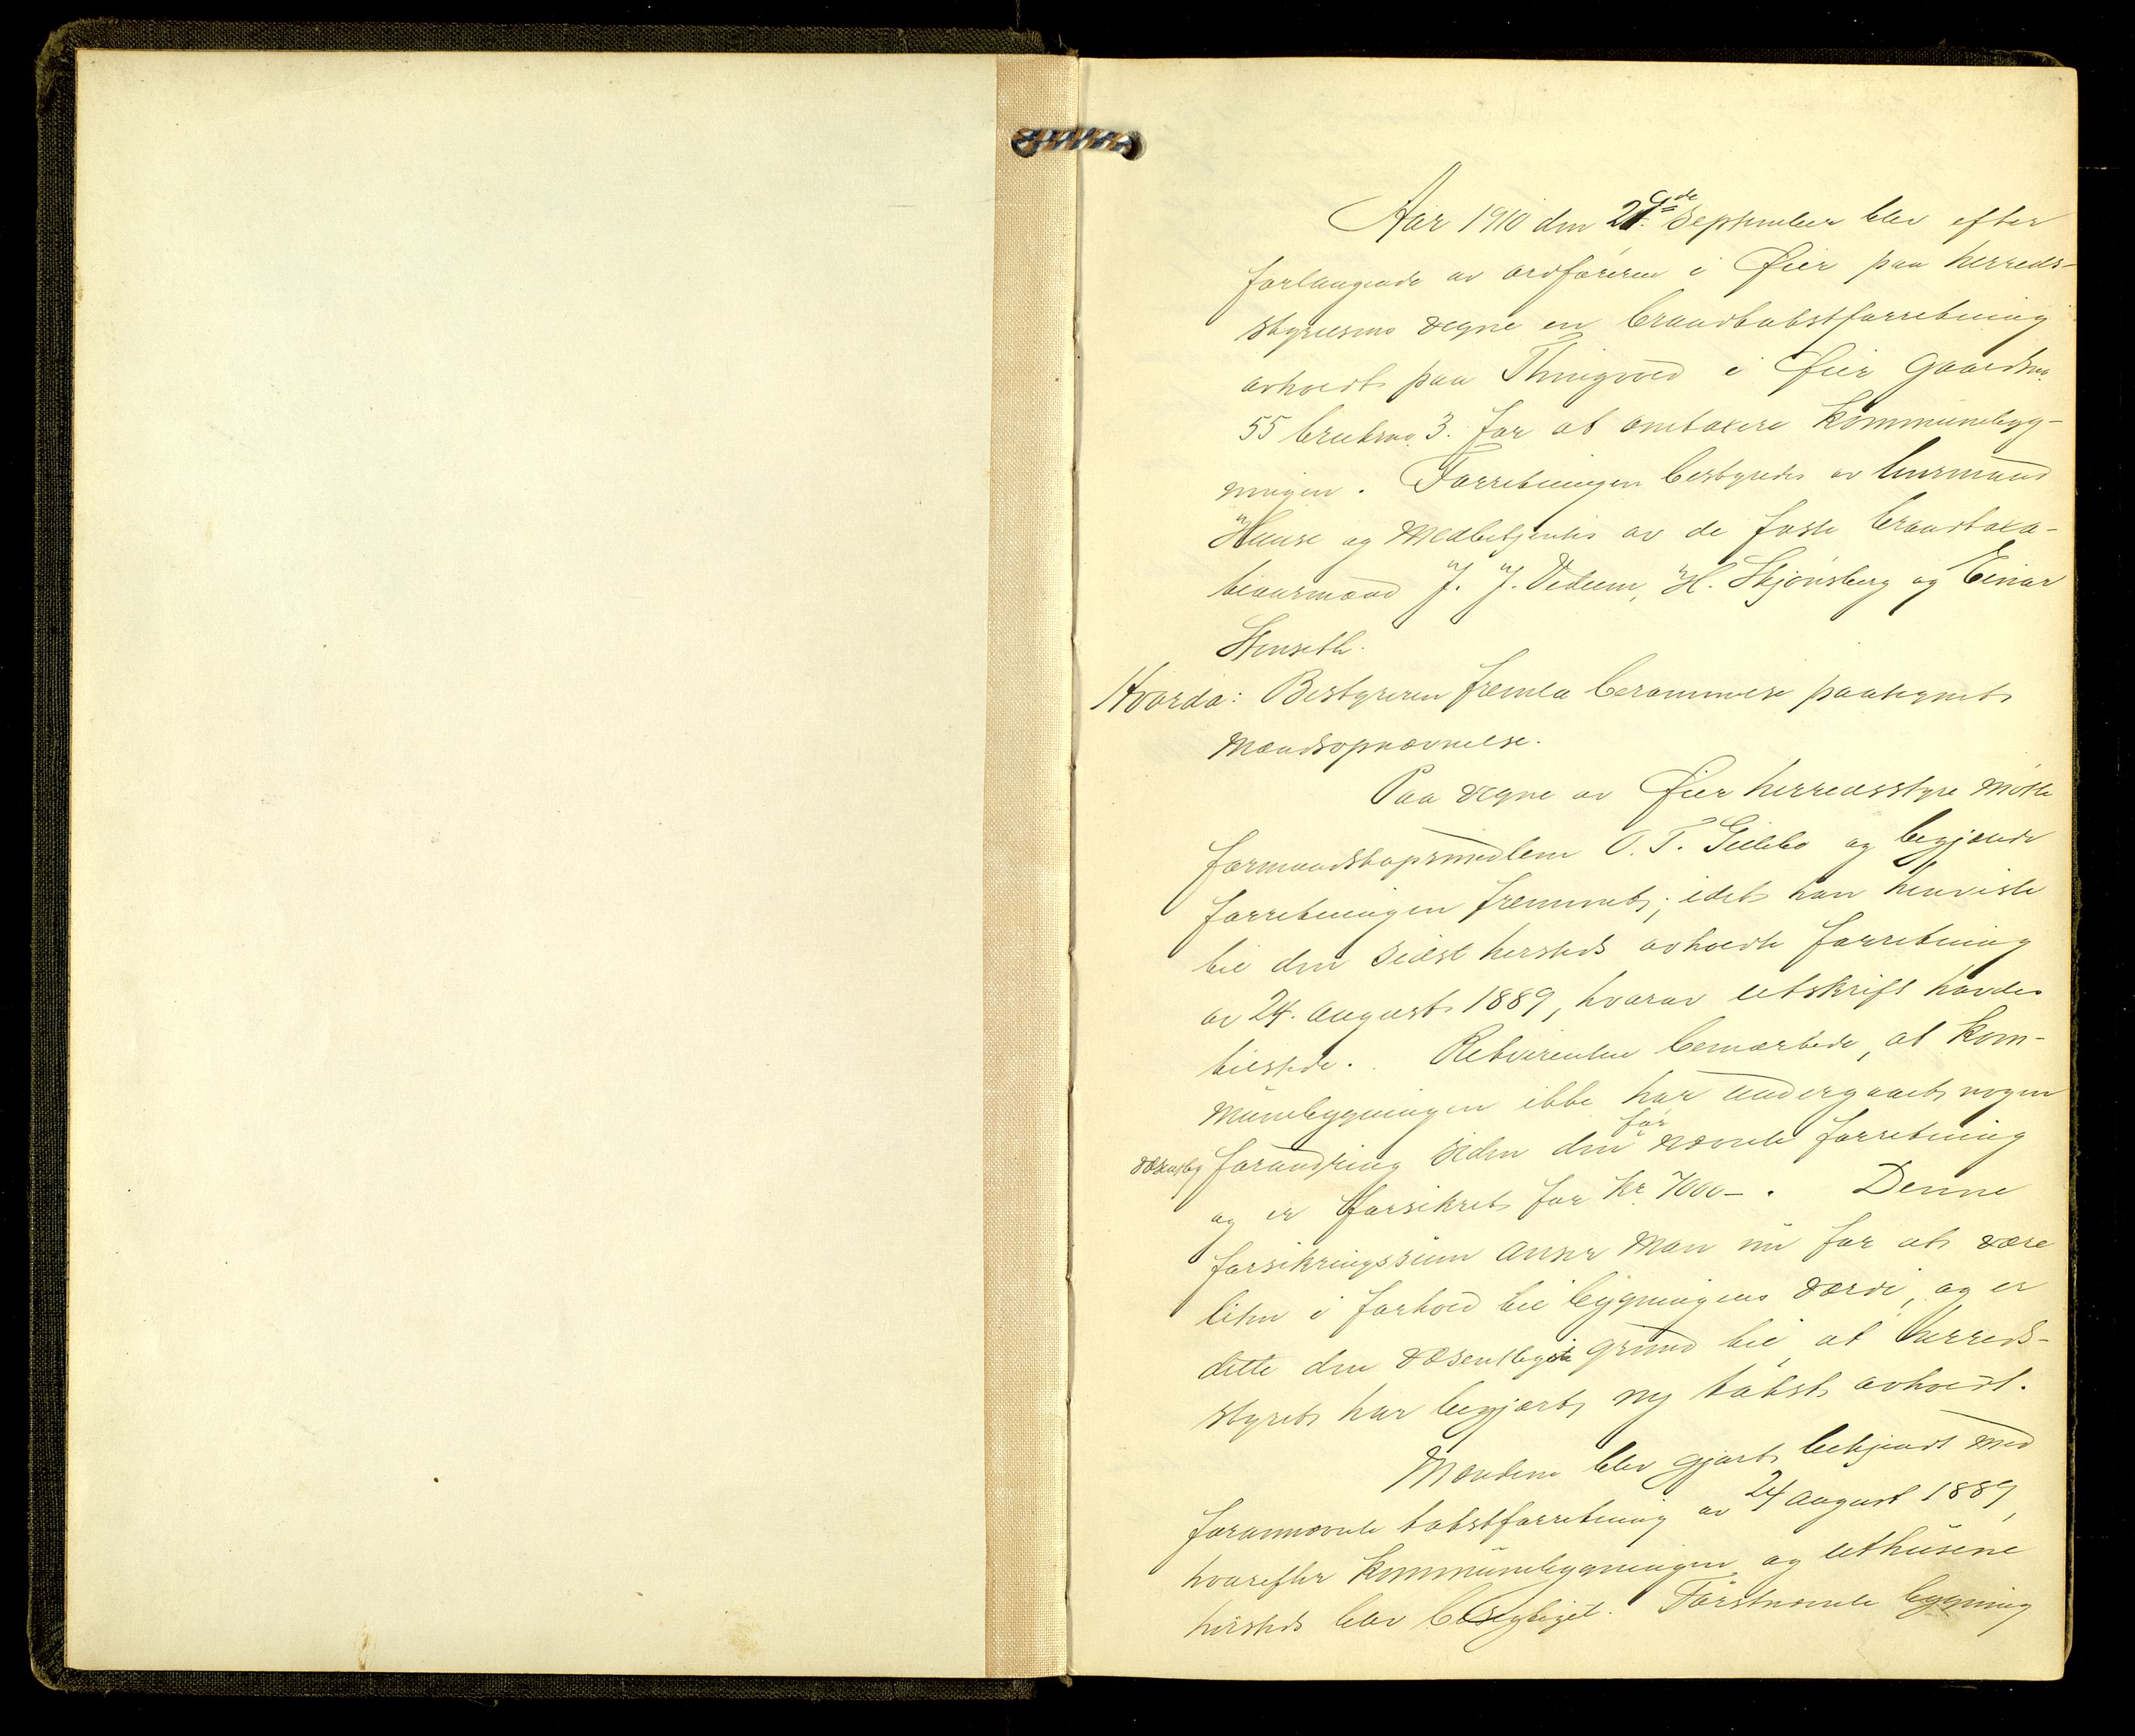 Aar 1910 den 29de September blev efter
forlangende av ordføreren i Øier paa herreds-
styrelsens vegne en brandtakstforretning
avholdt paa Thingvold i Øier gaardsno.
55 bruksno. 3. for at omtaxere kommunebyg-
ningen. Forretningen bestyredes av lensmand
Hause og medbetjentes av de faste brandtaxa-
tionsmænd J. J. Vedum, H. Skjønsberg og Einar
Stenseth.
Hvorda: Bestyreren fremla berammelse paategnet
mandsopnævnelse.
Paa vegne av Øier herredsstyre møtte
formandskapsmedlem O. T. Gillebo og begjærede
forretningen fremmet; idet han henviste
til den sidst hersteds avholdte forretning
av 24. august 1889, hvorav utskrift havdes
tilstede. Rekvirenten bemærkede, at kom-
munebygningen ikke har undergaaet nogen
væsentlig forandring siden den før nævnte forretning
og er forsikret for kr. 7000 – . Denne
forsikringssum anser man nu for at være
liten i forhold til bygningens værdi, og er
dette den væsentligste grund til, at herreds-
styret har begjært ny takst avholdt.
Mændene blev gjort bekjendt med
forannævnte takstforretning av 24 august 1889,
hvorefter kommunebygningen og uthusene
hersteds blev besigtiget. Førstnævnte bygning